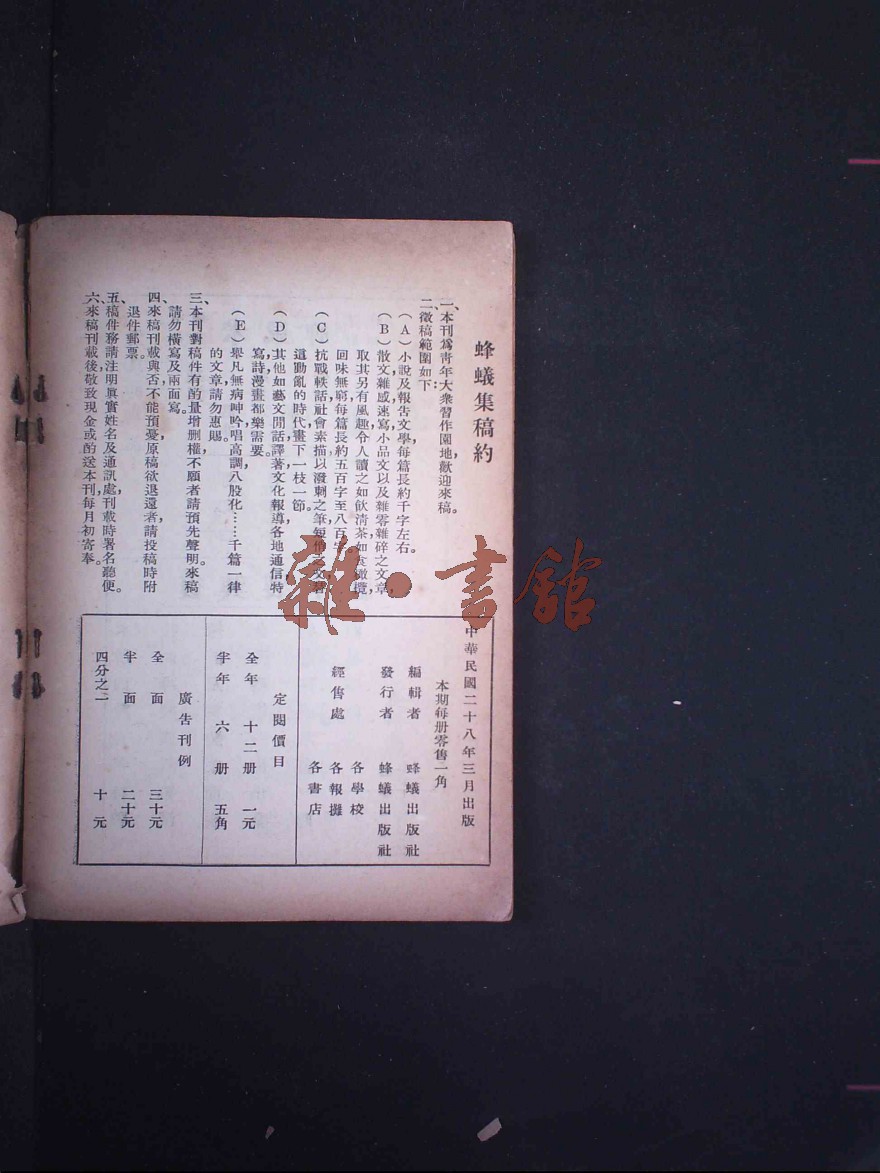 蜂蟻集稿約
一、本刊爲青年大衆習作園地，歡迎來稿。
二、徵稿範圍如下：
（A）小說及報告文學，每篇長約千字左右。
（B）散文雜感速寫小品文以及雜零雜碎之文章，
取其另有風趣，令人讀之如飲清茶，如食橄欖，
回味無窮，每篇長約五百字至八百字。
（C）抗戰軼話，社會素描，以潑刺之筆，短
這動亂的時代畫下一枝一節。
（D）其他如藝文閒話，譯著，文化報導，各地通信，特
寫，詩，漫畫都樂需要。
（E）舉凡無病呻吟，唱高調，八股化……千篇一律
的文章請勿惠賜。
三、本刊對稿件有酌量增删權，不願者請預先聲明。來稿
請勿橫寫及兩面寫。
四、來稿刊載與否，不能預憂，原稿欲退還者，請投稿時附
退件郵票。
五、稿件務請注明眞實姓名及通訊處，刊載時署名聽便。
六、來稿刊載後，敬致現金或酌送本刊，每月初寄奉。
中華民國二十八年三月出版
本期每册零售一角
編輯者 蜂蟻出版社
發行者 蜂蟻出版社
經售處 各學校
各報攤
各書店
定閱價目
全年 十二册 一元
半年 六册 五角
廣告刊例
全面 三十元
半面 二十元
四分之一 十元
雜·書館